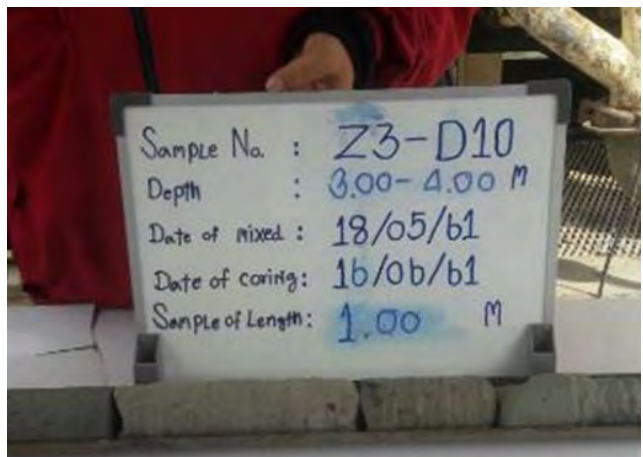 Sample No. : Z3-D10
Depth : 3.00-4.00 M
Date of mixed : 18/05/61
Date of coring : 16/06/61
Sample of Length : 1.00 M